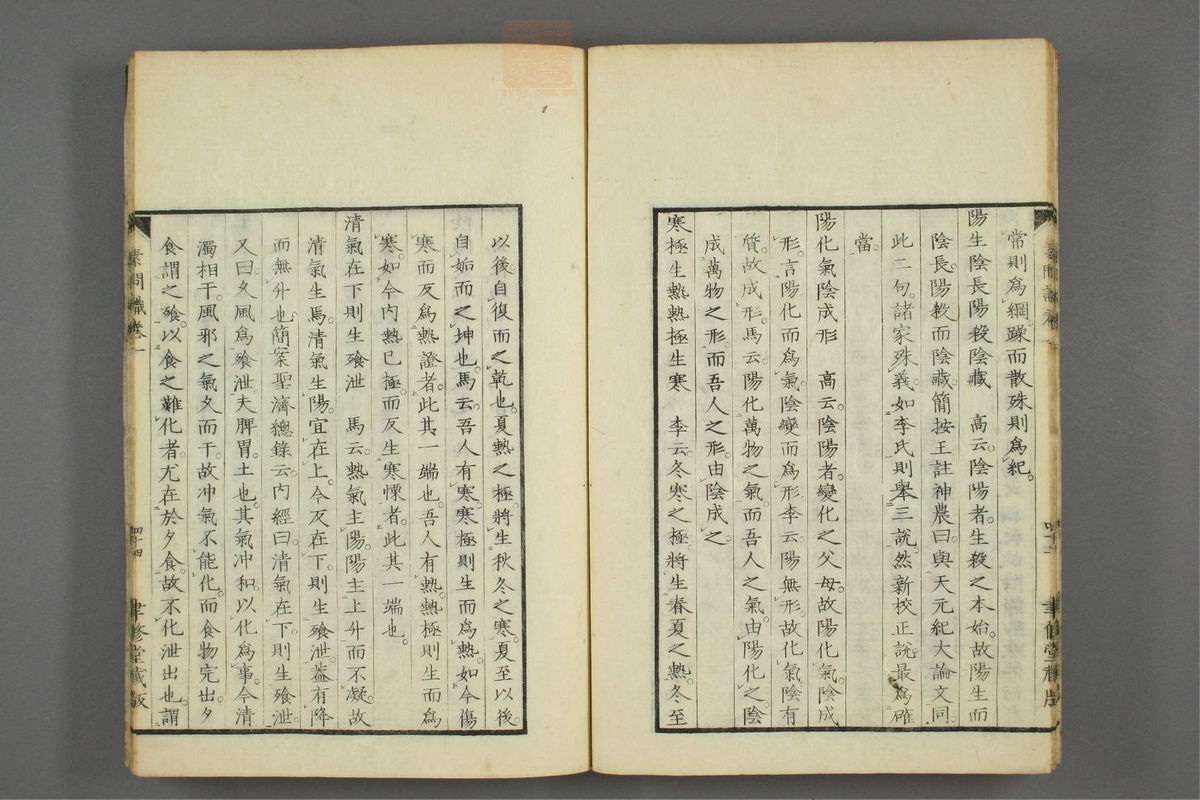 常則爲綱躁而散殊則爲紀。
陽生陰長陽殺陰藏　高云陰陽者。生殺之本始。故陽生而
陰長。陽殺而陰藏。簡按王註神農曰與天元紀大論文同
此二句。諸家殊義。如李氏則舉三說。然新校正說最爲確
當。
陽化氣陰成形　高云陰陽者。變化之父母。故陽化氣。陰成
形。言陽化而爲氣。陰變而爲形。李云陽無形。故化氣。陰有
質。故成形。馬云。陽化萬物之氣。而吾人之氣。由陽化之。陰
成萬物之形。而吾人之形。由陰成之。
寒極生熱熱極生寒　李云。冬寒之極。將生春夏之熱。冬至
以後。自復而之乾也。夏熱之極。將生秋冬之寒。夏至以後。
自姤而之坤也。馬云。吾人有寒。寒極則生而爲熱。如今傷
寒而反爲熱證者。此其一端也。吾人有熱。熱極則生而爲
寒。如今內熱已極。而反生寒慄者。此其一端也。
清氣在下則生飧泄　馬云。熱氣主陽。陽主上升而不凝。故
清氣生焉。清氣生陽。宜在上。今反在下。則生飧泄。蓋有降
而無升也。簡案聖濟總錄云。內經曰清氣在下。則生飧泄。
又曰。夕風爲飧泄。夫脾胃。土也。其氣冲和。以化爲事。今清
濁相干。風邪之氣夕而干。故冲氣不能化。而食物完出。夕
食謂之飧。以食之難化者。尤在於夕食。故不化泄出也。謂
素問識卷一
四十四
聿修堂藏版